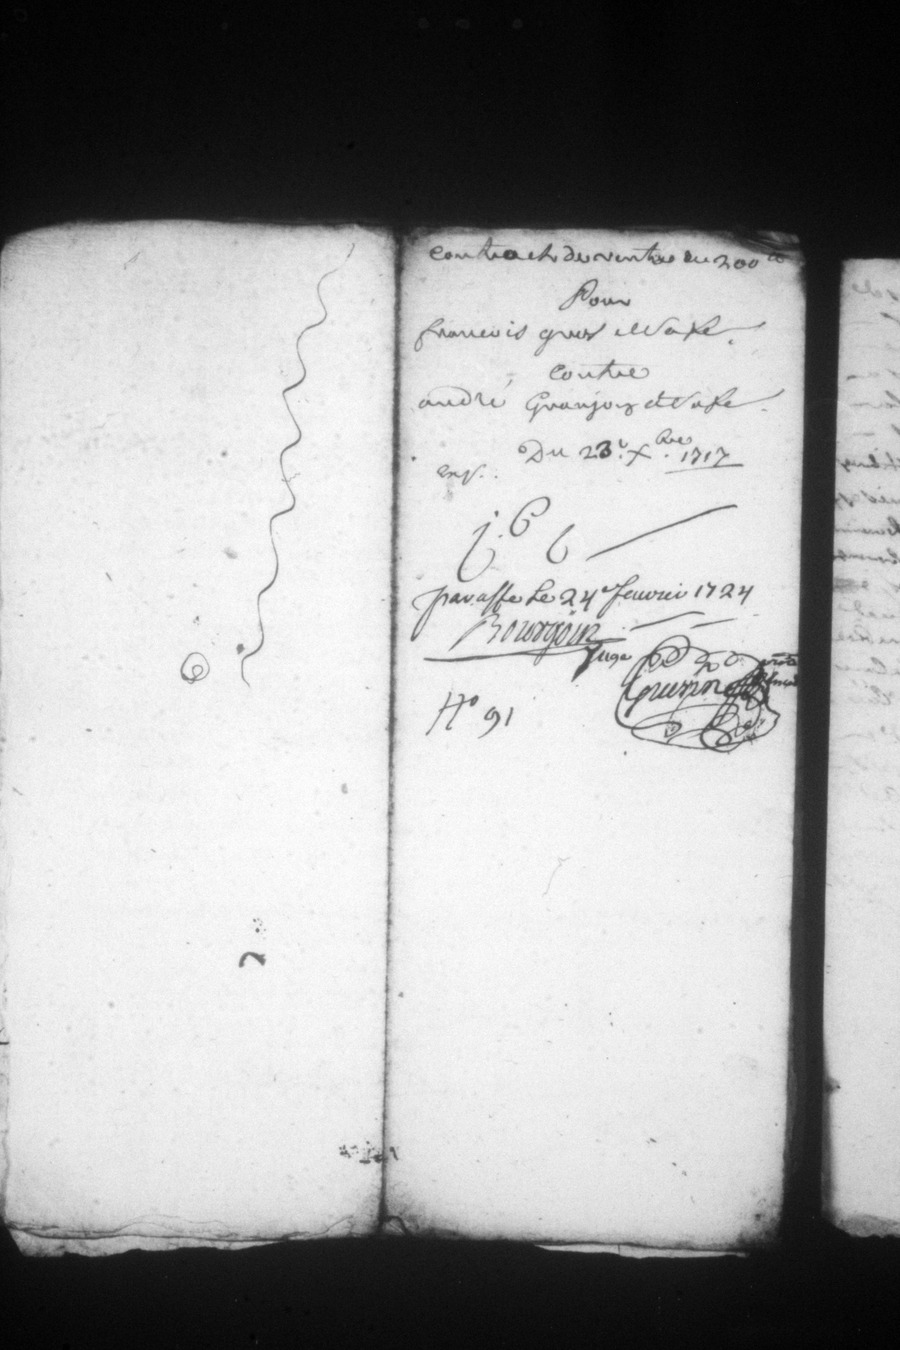 contract de vente de 200ᵗᵗ
Pour
francois gros et sa fe.
contre
andré Granjon et sa fe.
Du 23ᵉ. Xbre. 1717
exp.
paraffe le 24ᵉ feurier 1724
Bourgoin
Juge
N° 91